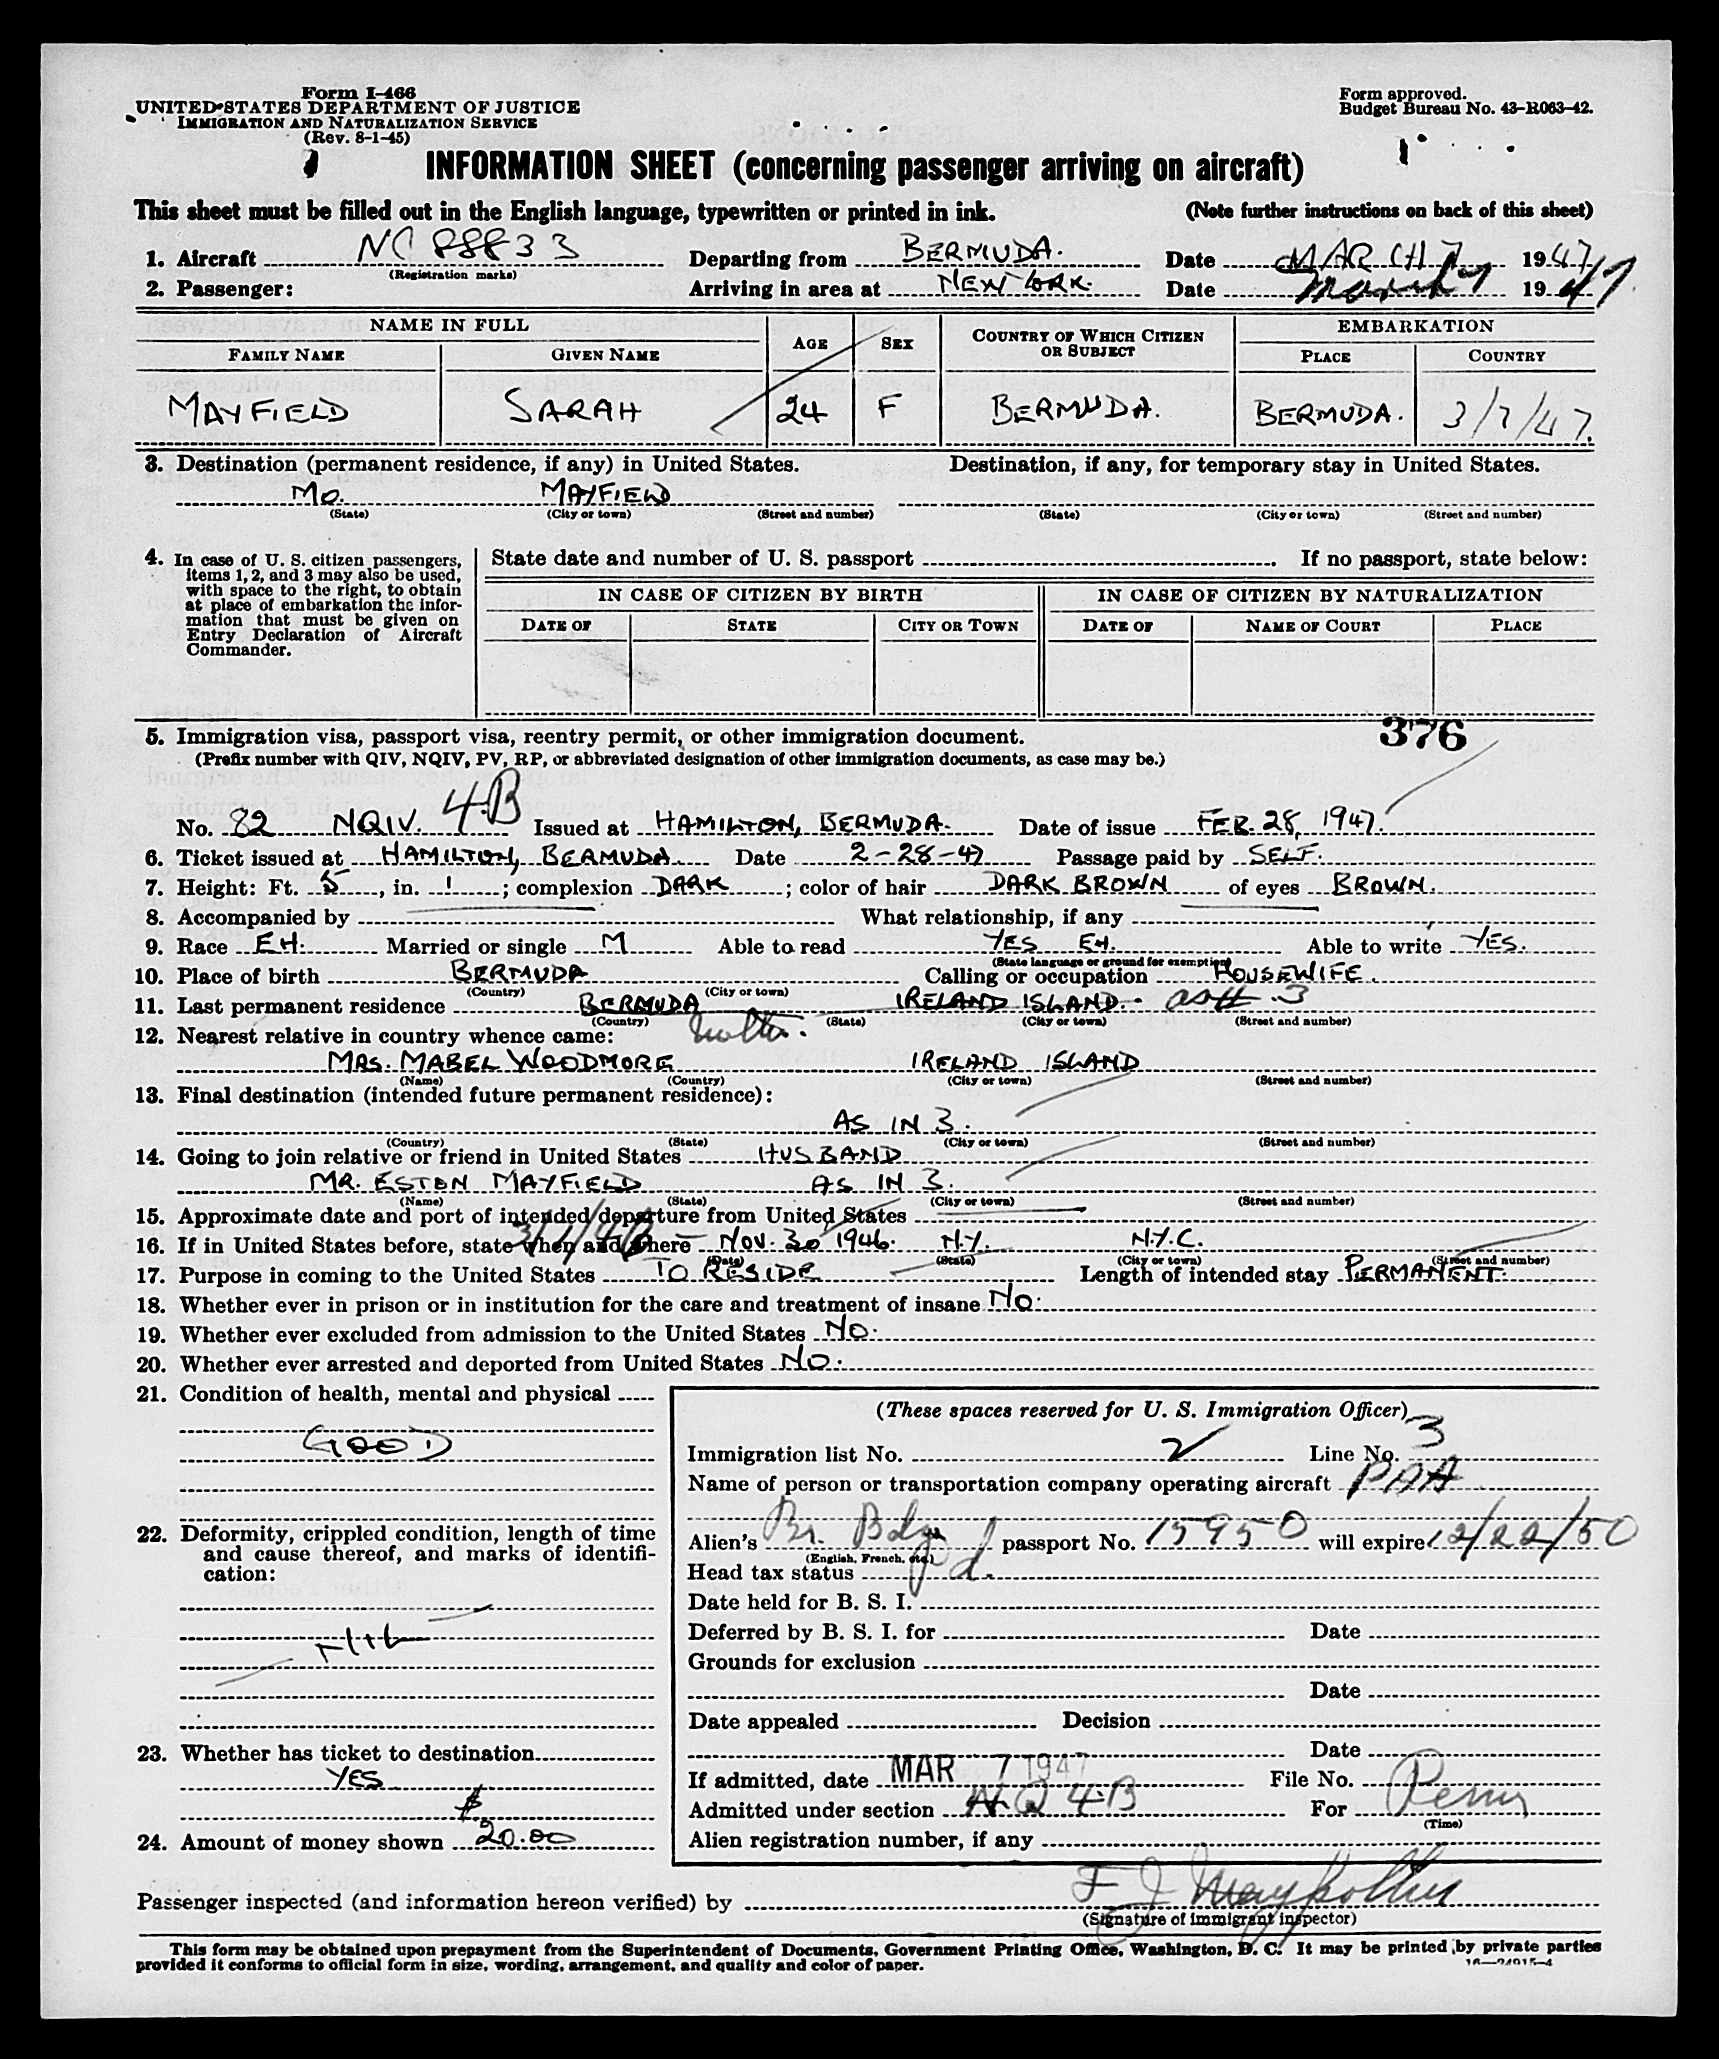 Form I-466
UNITED STATES DEPARTMENT OF JUSTICE
IMMIGRATION AND NATURALIZATION SERVICE
(Rev. 8-1-45)
Form approved.
Budget Bureau No. 43-R063-42.
INFORMATION SHEET (concerning passenger arriving on aircraft)
This sheet must be filled out in the English language, typewritten or printed in ink. (Note further instructions on back of this sheet)
1. Aircraft NC 88833 Departing from BERMUDA. Date MARCH 7 1947
(Registration marks)
2. Passenger: Arriving in area at NEW YORK. Date March 7 1947
NAME IN FULL AGE SEX COUNTRY OF WHICH CITIZEN OR SUBJECT EMBARKATION
FAMILY NAME GIVEN NAME PLACE COUNTRY
MAYFIELD SARAH 24 F BERMUDA. BERMUDA. 3/7/47.
3. Destination (permanent residence, if any) in United States. Destination, if any, for temporary stay in United States.
MO. MAYFIELD
(State) (City or town) (Street and number) (State) (City or town) (Street and number)
4. In case of U. S. citizen passengers, items 1, 2, and 3 may also be used, with space to the right, to obtain at place of embarkation the information that must be given on Entry Declaration of Aircraft Commander.
State date and number of U. S. passport . If no passport, state below:
IN CASE OF CITIZEN BY BIRTH IN CASE OF CITIZEN BY NATURALIZATION
DATE OF STATE CITY OR TOWN DATE OF NAME OF COURT PLACE
376
5. Immigration visa, passport visa, reentry permit, or other immigration document.
(Prefix number with QIV, NQIV, PV, RP, or abbreviated designation of other immigration documents, as case may be.)
No. 82 NQIV. 4.B Issued at HAMILTON, BERMUDA. Date of issue FEB. 28, 1947.
6. Ticket issued at HAMILTON, BERMUDA. Date 2-28-47 Passage paid by SELF.
7. Height: Ft. 5, in. 1; complexion DARK; color of hair DARK BROWN of eyes BROWN.
8. Accompanied by What relationship, if any
9. Race EH. Married or single M Able to read YES EH. Able to write YES.
(State language or ground for exemption)
10. Place of birth BERMUDA Calling or occupation HOUSEWIFE.
(Country) (City or town)
11. Last permanent residence BERMUDA IRELAND ISLAND. 3
(Country) (State) (City or town) (Street and number)
12. Nearest relative in country whence came: Mother.
MRS. MABEL WOODMORE IRELAND ISLAND
(Name) (Country) (City or town) (Street and number)
13. Final destination (intended future permanent residence):
AS IN 3.
(Country) (State) (City or town) (Street and number)
14. Going to join relative or friend in United States HUSBAND
MR. ESTON MAYFIELD AS IN 3.
(Name) (State) (City or town) (Street and number)
15. Approximate date and port of intended departure from United States
16. If in United States before, state when and where NOV. 30 1946. N.Y. N.Y.C.
(Date) (State) (City or town) (Street and number)
17. Purpose in coming to the United States TO RESIDE Length of intended stay PERMANENT.
18. Whether ever in prison or in institution for the care and treatment of insane NO.
19. Whether ever excluded from admission to the United States NO.
20. Whether ever arrested and deported from United States NO.
21. Condition of health, mental and physical
GOOD
22. Deformity, crippled condition, length of time and cause thereof, and marks of identification:
NIL
23. Whether has ticket to destination
YES
24. Amount of money shown $20.00
(These spaces reserved for U. S. Immigration Officer)
Immigration list No. 2 Line No. 3
Name of person or transportation company operating aircraft PAA
Alien's Br. passport No. 15950 will expire 12/22/50
(English, French, etc.)
Head tax status
Date held for B. S. I.
Deferred by B. S. I. for Date
Grounds for exclusion
Date
Date appealed Decision
Date
If admitted, date MAR 7 1947 File No.
Admitted under section NQ 4-B For Perm
(Time)
Alien registration number, if any
Passenger inspected (and information hereon verified) by F J
(Signature of immigrant inspector)
This form may be obtained upon prepayment from the Superintendent of Documents, Government Printing Office, Washington, D. C. It may be printed by private parties
provided it conforms to official form in size, wording, arrangement, and quality and color of paper.
16—24915-4